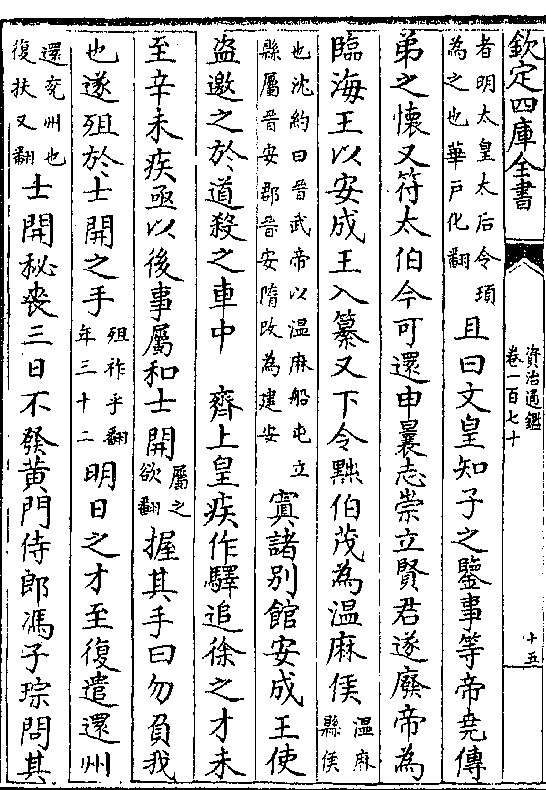 欽定四庫全書
資治通鑑
卷一百七十
十五
者明太皇太后令項
為之也華戶化翻
且曰文皇知子之鑒事等帝堯傳
弟之懷又符太伯今可還申曩志崇立賢君遂廢帝為
臨海王以安成王入纂又下令黜伯茂為溫麻侯
溫麻
縣侯
也沈約曰晉武帝以溫麻船屯立
縣屬晉安郡晉安隋改為建安
寘諸別館安成王使
盜邀之於道殺之車中　齊上皇疾作驛追徐之才未
至辛未疾亟以後事屬和士開
屬之
欲翻
握其手曰勿負我
也遂殂於士開之手
殂祚乎翻
年三十二
明日之才至復遣還州
還兗州也
復扶又翻
士開秘喪三日不發黃門侍郎馮子琮問其